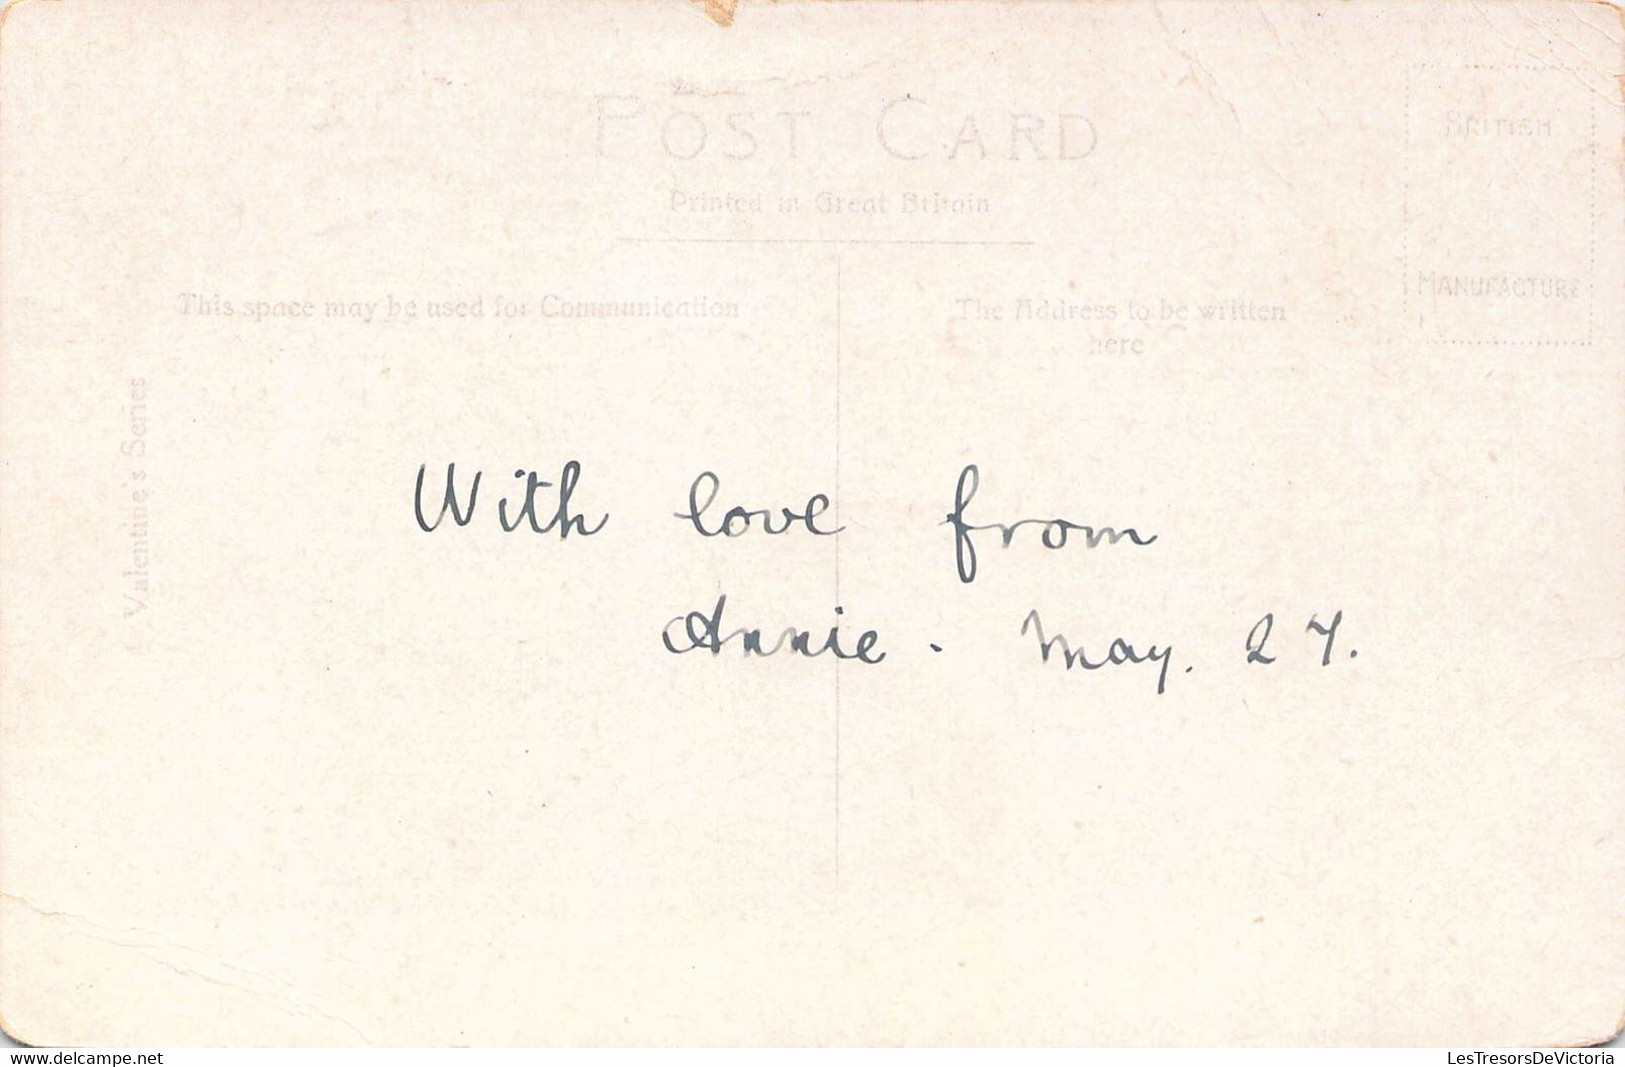 POST CARD
Printed in Great Britain
BRITISH
MANUFACTURE
This space may be used for Communication
The Address to be written
here
Valentine's Series
With love from
Annie. May. 27.
delcampe.net
LesTresorsDeVictoria